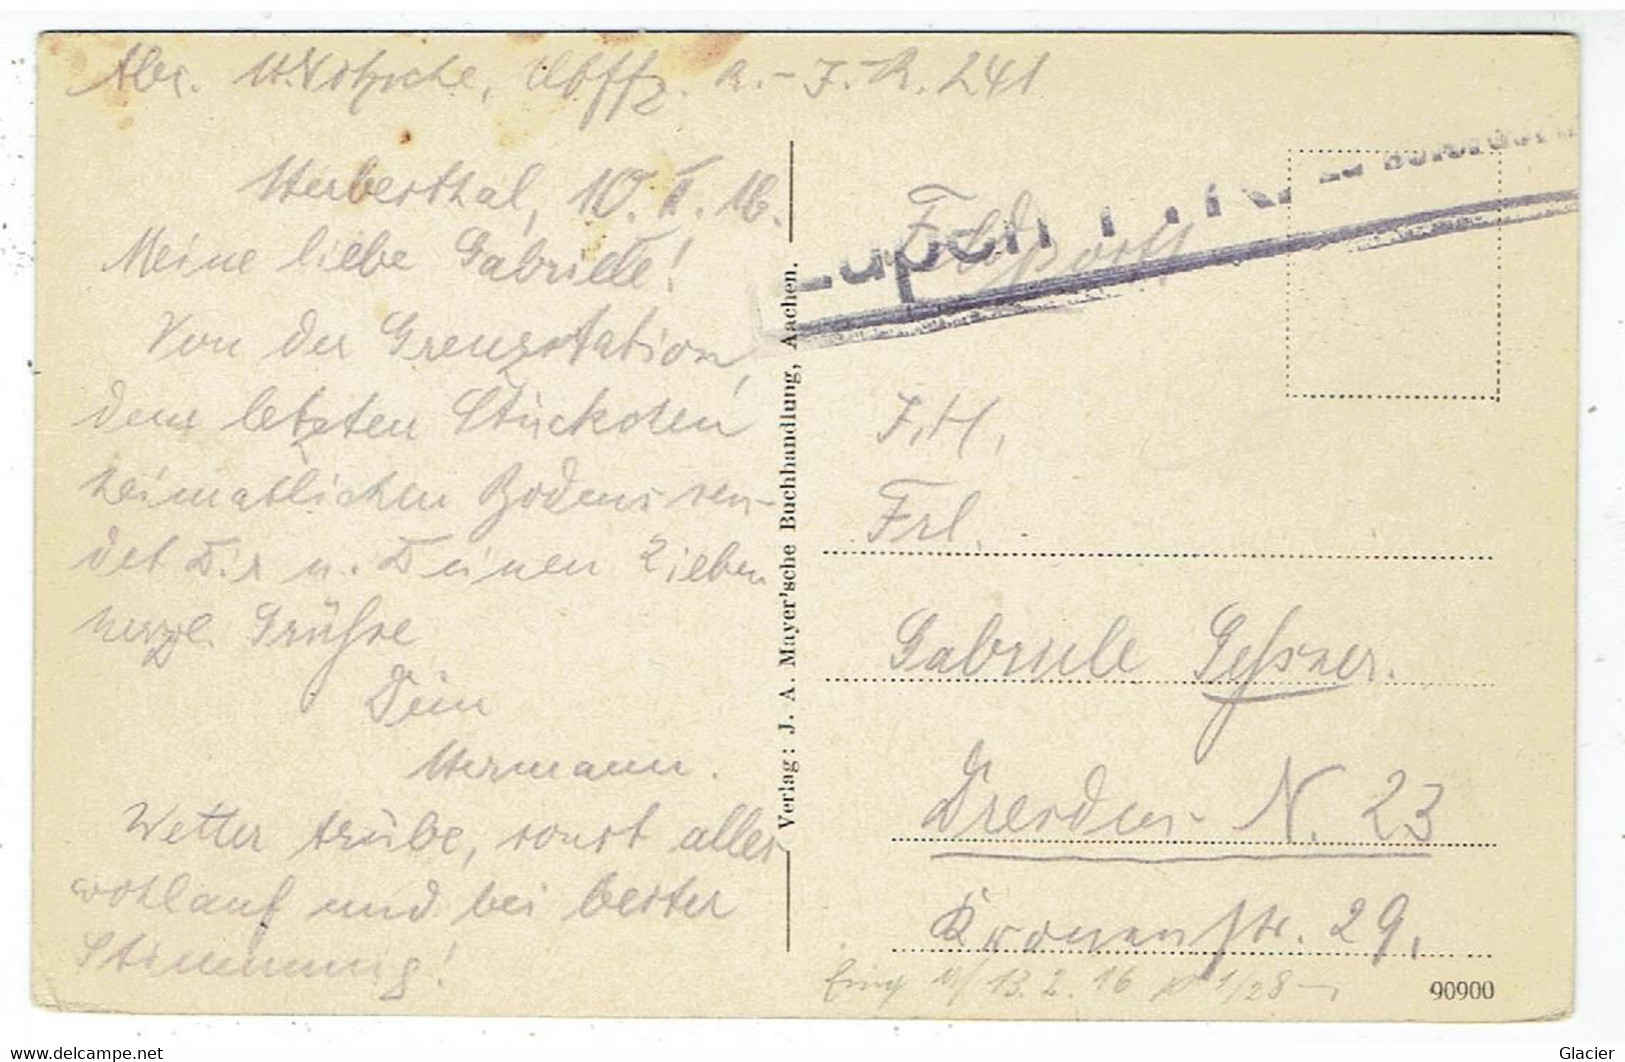 Abs. H. Nitzsche, Utffz. R.-J.-R. 241
Herbesthal, 10. II. 16.
Meine liebe Gabriele!
Von der Grenzstation,
dem letzten Stückchen
heimatlichen Bodens sen-
det Dir u. Deinen Lieben
herzl. Grüße
Dein
Hermann.
Wetter trübe, sonst alles
wohlauf und bei bester
Stimmung!
Verlag: J. A. Mayer'sche Buchhandlung, Aachen.
Eupen
Feldpost
F.H.
Frl.
Gabriele Geßner.
Dresden- N. 23
Kronenstr. 29.
13. 2. 16
90900
www.delcampe.net
Glacier